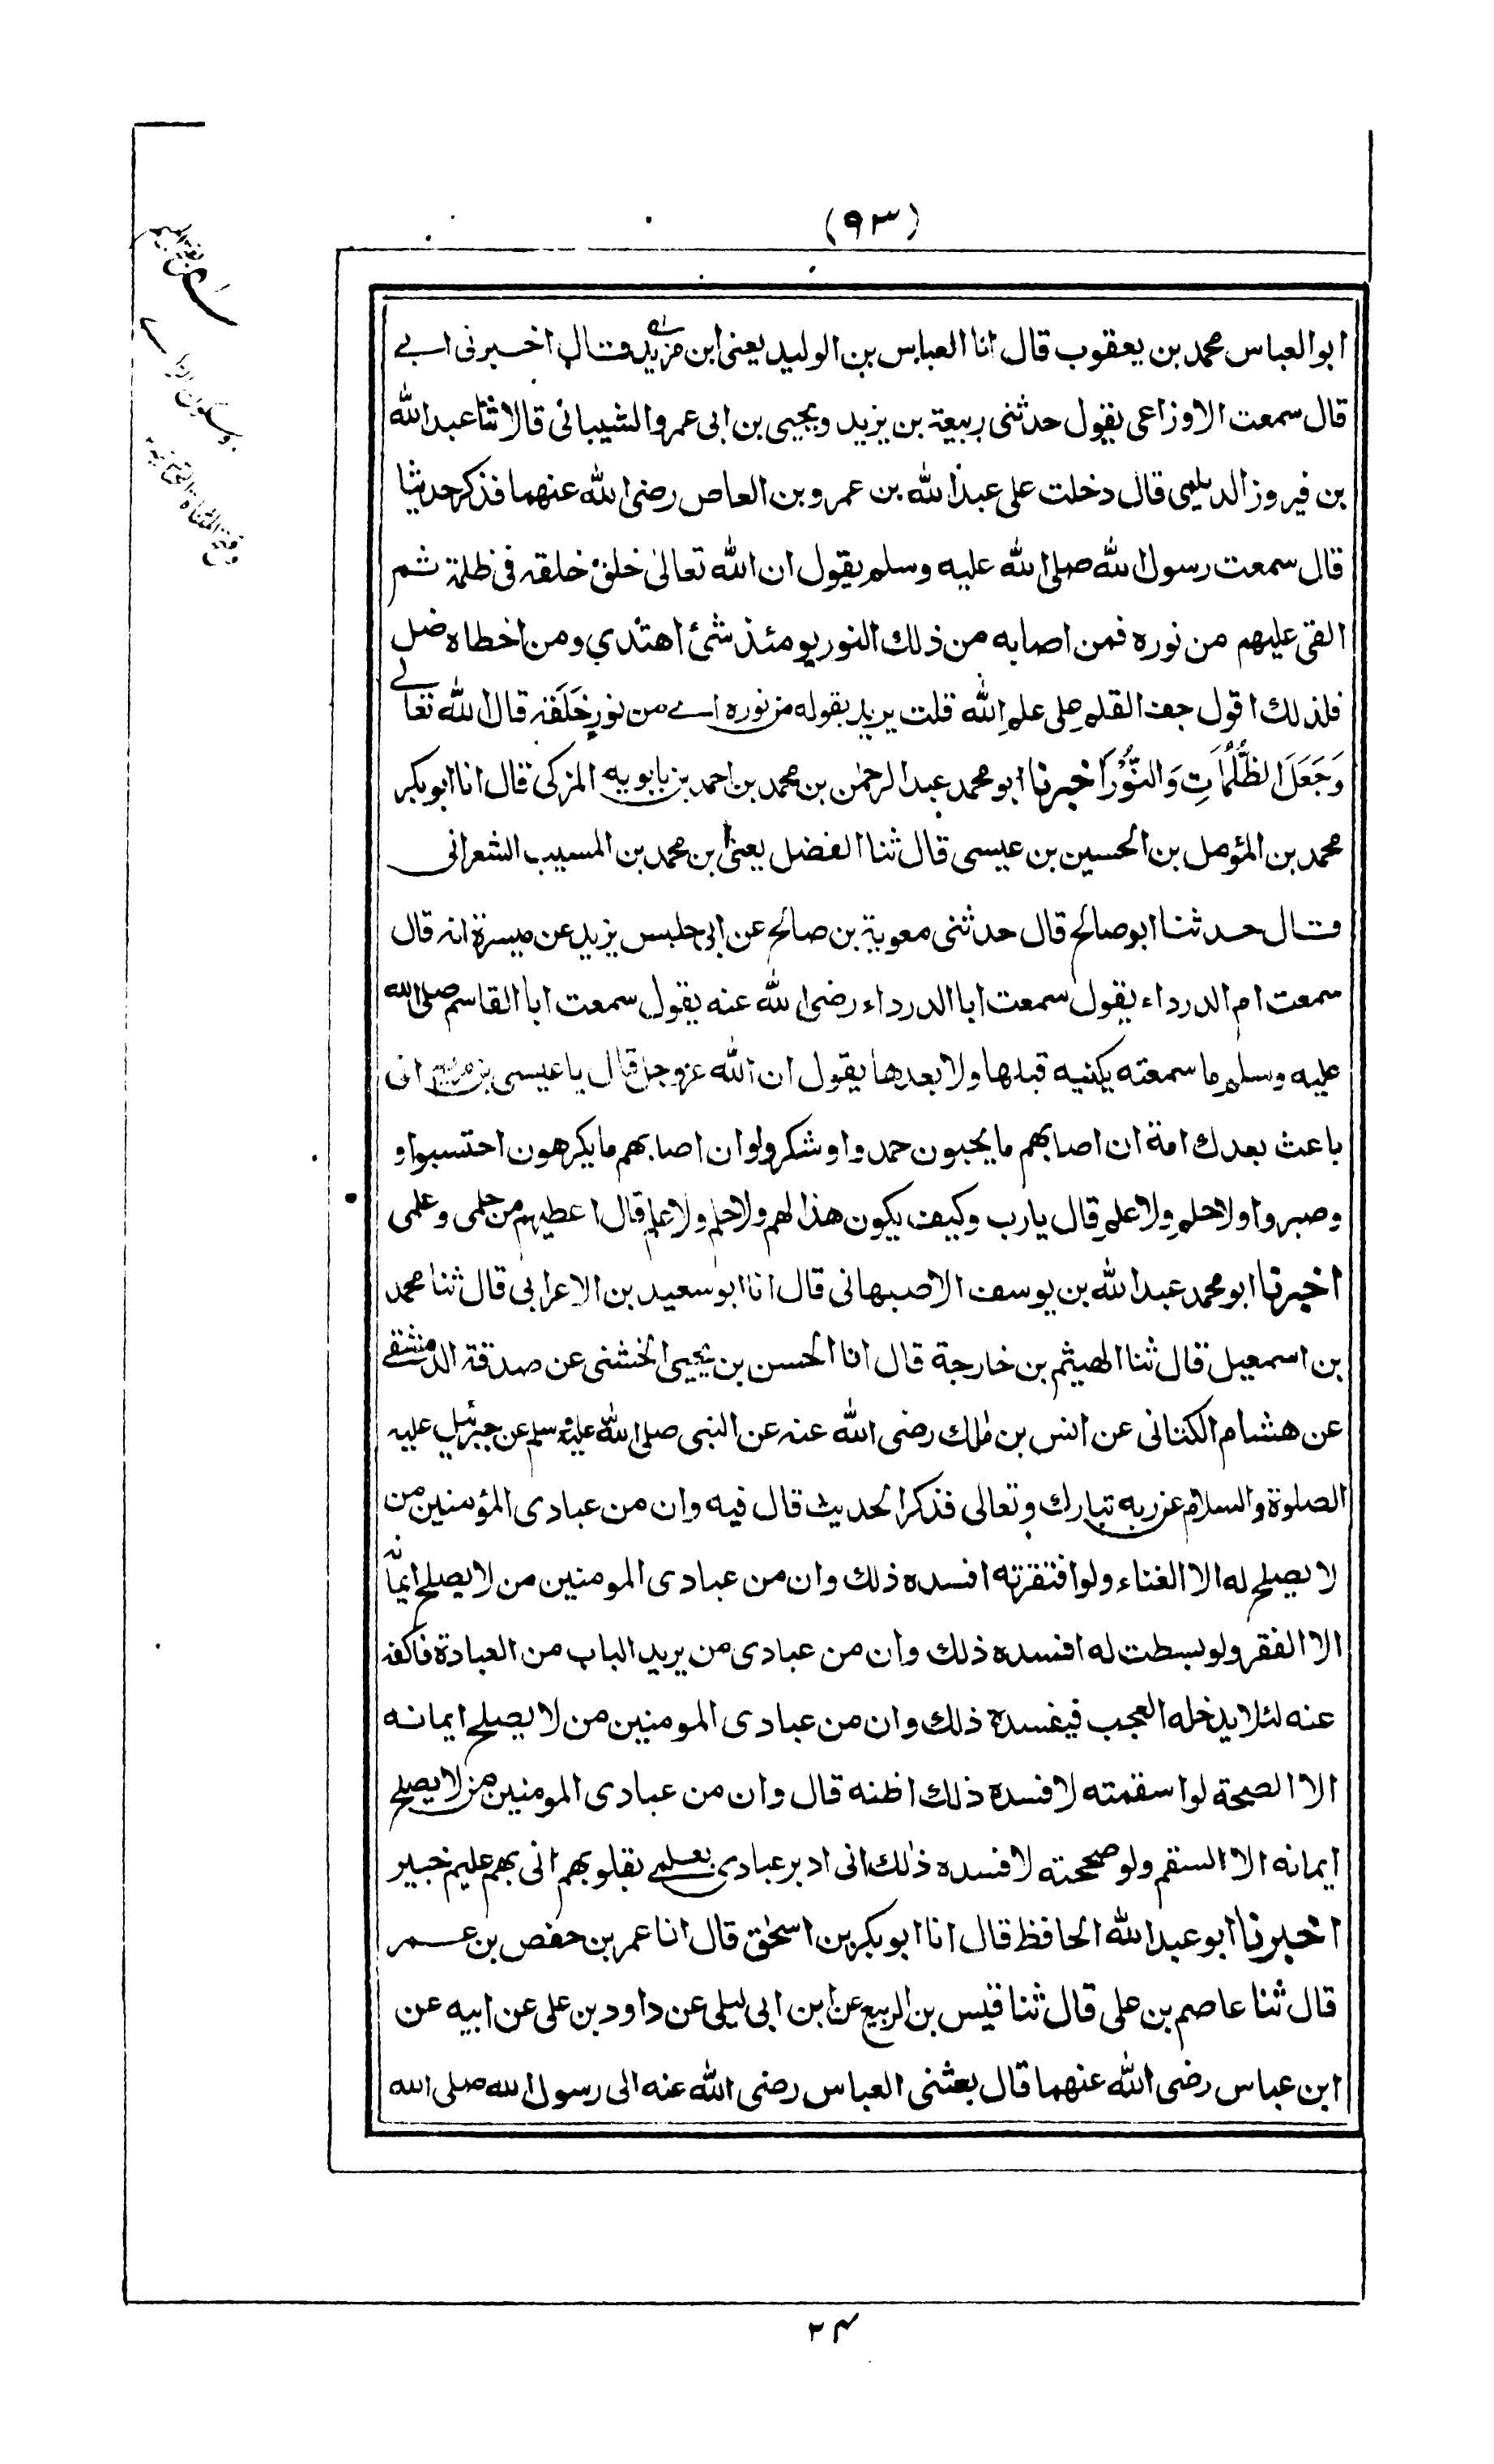 (٩٣)
ابوالعباس محمد بن يعقوب قال انا العباس بن الوليد يعنى ابن مزيد قال اخبرنى ابے
قال سمعت الاوزاعى يقول حدثنى ربيعة بن يزيد ويحيى بن ابى عمرو الشيبانى قالا ثنا عبدالله
بن فيروز الديلمى قال دخلت على عبدالله بن عمرو بن العاص رضى الله عنهما فذكر حديثا
قال سمعت رسول الله صلى الله عليه وسلم يقول ان الله تعالىٰ خلق خلقه فى ظلمة ثم
القى عليهم من نوره فمن اصابه من ذلك النور يومئذ شئ اهتدي ومن اخطاه ضل
فلذلك اقول جف القلم على علم الله قلت يريد بقوله من نوره اے من نور خَلَقَه قال الله تعالے
وَجَعَلَ الظُّلُمَاتِ وَالنُّوْرَ اخبرنا ابو محمد عبدالرحمٰن بن محمد بن احمد بن بابويه المزكى قال انا ابوبكر
محمد بن المؤمل بن الحسين بن عيسى قال ثنا الفضل يعنى ابن محمد بن المسيب الشعرانى
قال حدثنا ابوصالح قال حدثنى معوية بن صالح عن ابى حلبس يزيد عن ميسرة انه قال
سمعت ام الدرداء يقول سمعت ابا الدرداء رضى الله عنه يقول سمعت ابا القاسم صلى الله
عليه وسلم ما سمعته يكنيه قبلها ولا بعدها يقول ان الله عزوجل قال يا عيسى بن مريم انى
باعث بعدك امة ان اصابهم ما يحبون حمدوا وشكرو لوان اصابهم ما يكرهون احتسبوا و
وصبروا ولا حلم ولا علم قال يارب وكيف يكون هذا لهم ولا حلم ولا علم قال اعطيهم من حلمى وعلمى
اخبرنا ابو محمد عبدالله بن يوسف الاصبهانى قال انا ابوسعيد بن الاعرابى قال ثنا محمد
بن اسمعيل قال ثنا الهيثم بن خارجة قال انا الحسن بن يحيى الخشنى عن صدقة الدمشقے
عن هشام الكنانى عن انس بن مٰلك رضى الله عنه عن النبى صلى الله عليه وسلم عن جبرئيل عليه
الصلوة والسلام عن ربه تبارك وتعالى فذكر الحديث قال فيه وان من عبادى المؤمنين من
لا يصلح له الا الغناء ولو افتقرته افسده ذلك وان من عبادى المومنين من لا يصلح ايمانه
الا الفقر ولو بسطت له افسده ذلك وان من عبادى من يريد الباب من العبادة فاكفه
عنه لئلا يدخله العجب فيفسده ذلك وان من عبادى المومنين من لا يصلح ايمانه
الا الصحة لو اسقمته لافسده ذلك اظنه قال وان من عبادى المومنين من لا يصلح
ايمانه الا السقم ولو صححته لافسده ذٰلك انى ادبر عبادى بعلمے بقلوبهم انى بهم عليم خبير
اخبرنا ابو عبدالله الحافظ قال انا ابوبكر بن اسحٰق قال انا عمر بن حفص بن عمر
قال ثنا عاصم بن على قال ثنا قيس بن الربيع عن ابن ابى ليلى عن داود بن على عن ابيه عن
ابن عباس رضى الله عنهما قال بعثنى العباس رضى الله عنه الى رسول الله صلى الله
٢٤